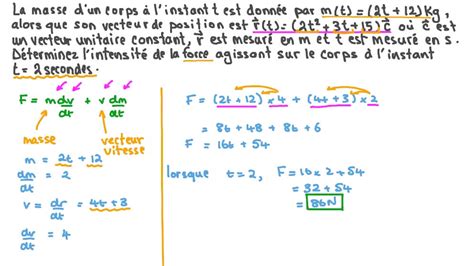 La masse d'un corps à l'instant t est donnée par m(t) = (2t + 12) kg,
alors que son vecteur de position est r⃗(t) = (2t² + 3t + 15) c⃗ où c⃗ est
un vecteur unitaire constant, r⃗ est mesuré en m et t est mesuré en s.
Déterminez l'intensité de la force agissant sur le corps à l'instant
t = 2 secondes.
F = m dv/dt + v dm/dt
masse
vecteur
vitesse
m = 2t + 12
dm/dt = 2
v = dr/dt = 4t + 3
dv/dt = 4
F = (2t + 12) × 4 + (4t + 3) × 2
= 8t + 48 + 8t + 6
F = 16t + 54
lorsque t = 2, F = 16 × 2 + 54
= 32 + 54
= 86N